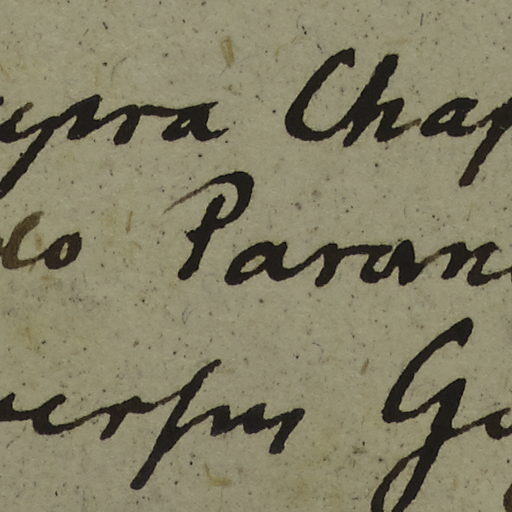 supra Chap
lo Paran
versus Go